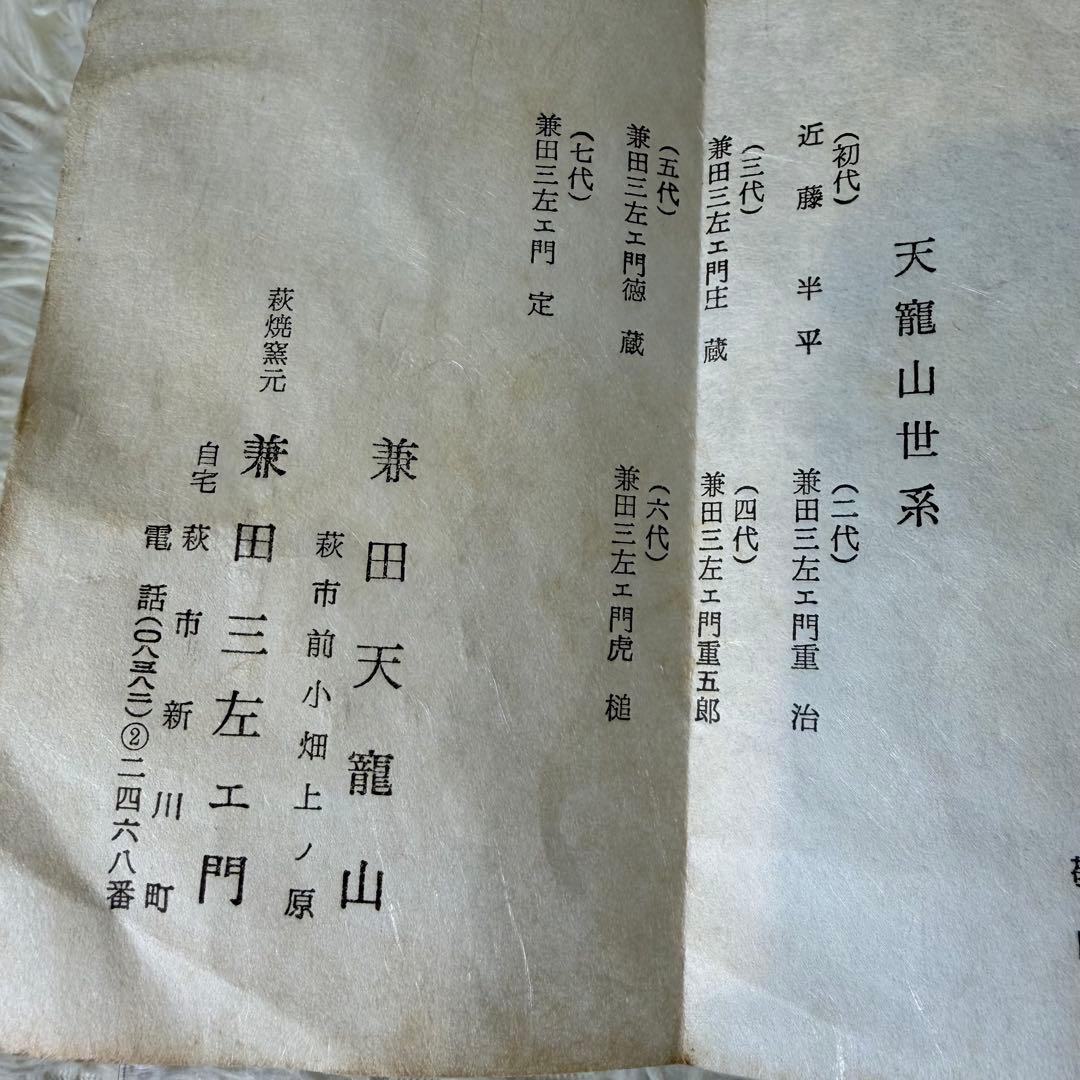 天寵山世系
(初代)
近藤半平
(二代)
兼田三左ェ門重治
(三代)
兼田三左ェ門庄蔵
(四代)
兼田三左ェ門重五郎
(五代)
兼田三左ェ門徳蔵
(六代)
兼田三左ェ門虎槌
(七代)
兼田三左ェ門定
兼田天寵山
萩市前小畑上ノ原
萩焼窯元 兼田三左エ門
自宅 萩市新川町
電話(〇八三八二)②二四六八番